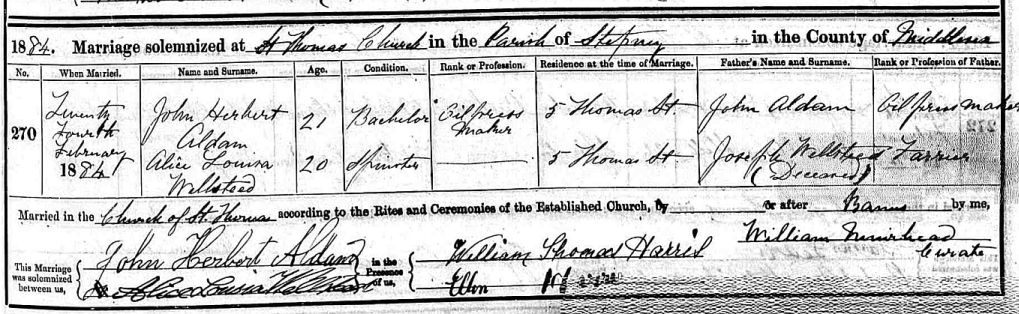 1884. Marriage solemnized at St Thomas Church in the Parish of Stepney in the County of Middlesex
No. When Married. Name and Surname. Age. Condition. Rank or Profession. Residence at the time of Marriage. Father's Name and Surname. Rank or Profession of Father.
270 Twenty Fourth February 1884
John Herbert Aldam 21 Bachelor Oil press Maker 5 Thomas St. John Aldam Oil press maker
Alice Louisa Wellsteed 20 Spinster 5 Thomas St Joseph Wellsteed (Deceased) Farrier
Married in the Church of St. Thomas according to the Rites and Ceremonies of the Established Church, by or after Banns by me,
William Muirhead
Curate
This Marriage was solemnized between us, John Herbert Aldam
in the Presence of us, William Thomas Harris